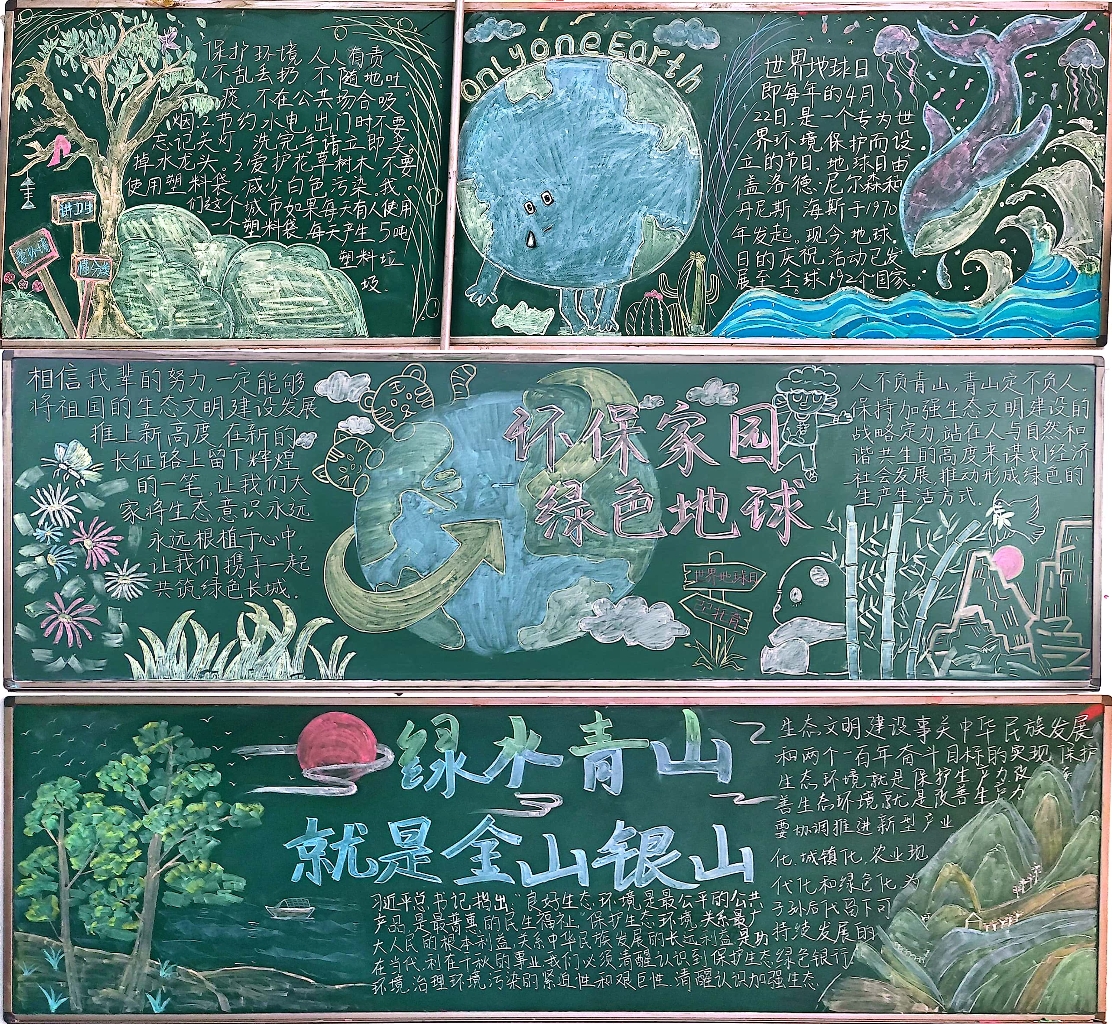 保护环境 人人有责
1.不乱丢扔 不随地吐
痰.不在公共场合吸
烟.2.节约水电,出门时不要
忘记关灯,洗完手请立即关
掉水龙头.3.爱护花草树木,不要
使用塑料袋,减少白色污染.我
们这个城市如果每天有人使用
一个塑料袋,每天产生5吨
塑料垃
圾.
讲卫生
Only one Earth
世界地球日
即每年的4月
22日,是一个专为世
界环境保护而设
立的节日.地球日由
盖洛德·尼尔森和
丹尼斯 海斯于1970
年发起.现今,地球
日的庆祝活动已发
展至全球192个国家.
相信我辈的努力,一定能够
将祖国的生态文明建设发展
推上新高度,在新的
长征路上留下辉煌
的一笔,让我们大
家将生态意识永远
永远根植于心中,
让我们携手一起
共筑绿色长城.
环保家园
绿色地球
世界地球日
人不负青山,青山定不负人.
保持加强生态文明建设的
战略定力,站在人与自然和
谐共生的高度来谋划经济
社会发展,推动形成绿色的
生产生活方式.
绿水青山
就是金山银山
习近平总书记指出,良好生态环境是最公平的公共
产品,是最普惠的民生福祉."保护生态环境,关系最广
大人民的根本利益,关系中华民族发展的长远利益,是功
在当代,利在千秋的事业,我们必须清醒认识到保护生态绿色银行
环境,治理环境污染的紧迫性和艰巨性,清醒认识加强生态
生态文明建设事关中华民族发展
和两个一百年奋斗目标的实现,保护
生态环境就是保护生产力改
善生态环境就是改善生产力
要协调推进新型产业
化,城镇化,农业现
代化和绿色化为
子孙后代留下可
持续发展的